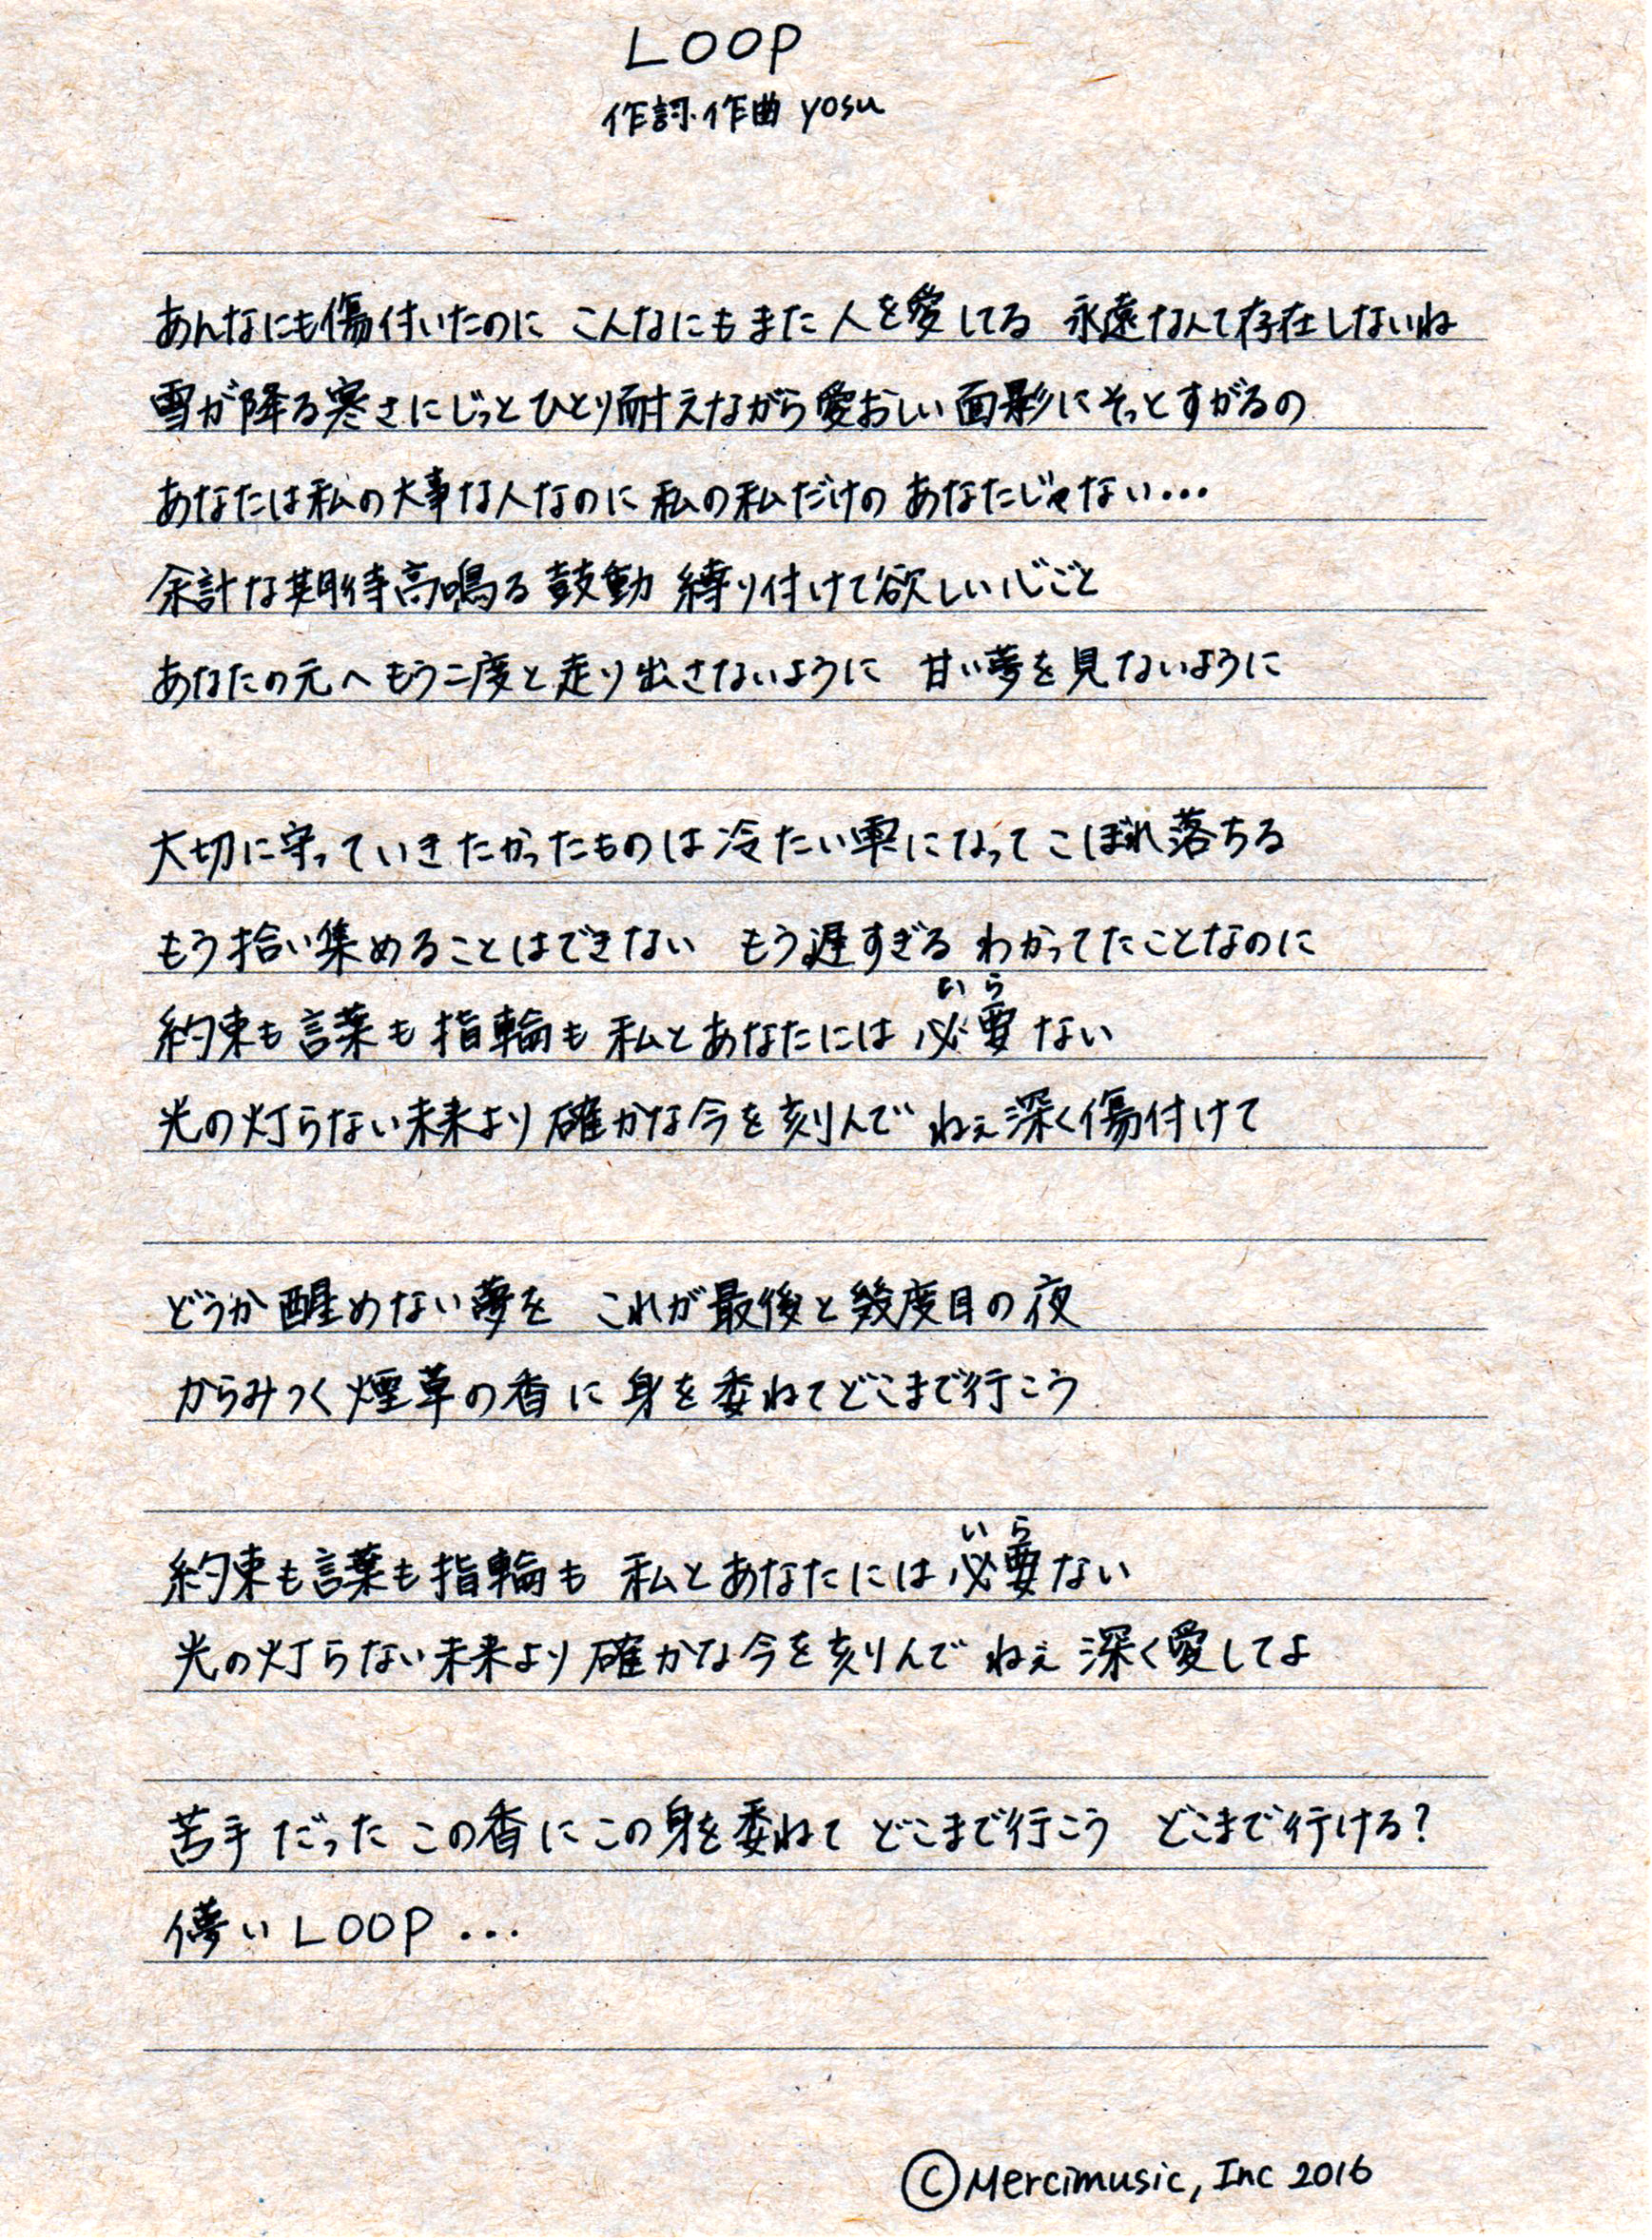 LOOP
作詞・作曲 yosu
あんなにも傷付いたのに こんなにもまた 人を愛してる 永遠なんて存在しないね
雪が降る寒さにじっとひとり耐えながら愛おしい面影にそっとすがるの
あなたは私の大事な人なのに 私の私だけの あなたじゃない…
余計な期待高鳴る鼓動 縛り付けて欲しい心ごと
あなたの元へもう二度と走り出さないように 甘い夢を見ないように
大切に守っていきたかったものは冷たい雫になってこぼれ落ちる
もう拾い集めることはできない もう遅すぎる わかってたことなのに
いら
約束も言葉も指輪も 私とあなたには 必要ない
光の灯らない未来より確かな今を刻んで ねぇ深く傷付けて
どうか醒めない夢を これが最後と幾度目の夜
からみつく煙草の香に身を委ねてどこまで行こう
いら
約束も言葉も指輪も 私とあなたには必要ない
光の灯らない未来より確かな今を刻んで ねぇ 深く愛してよ
苦手だった この香にこの身を委ねて どこまで行こう どこまで行ける?
儚い LOOP …
©Mercimusic, Inc 2016